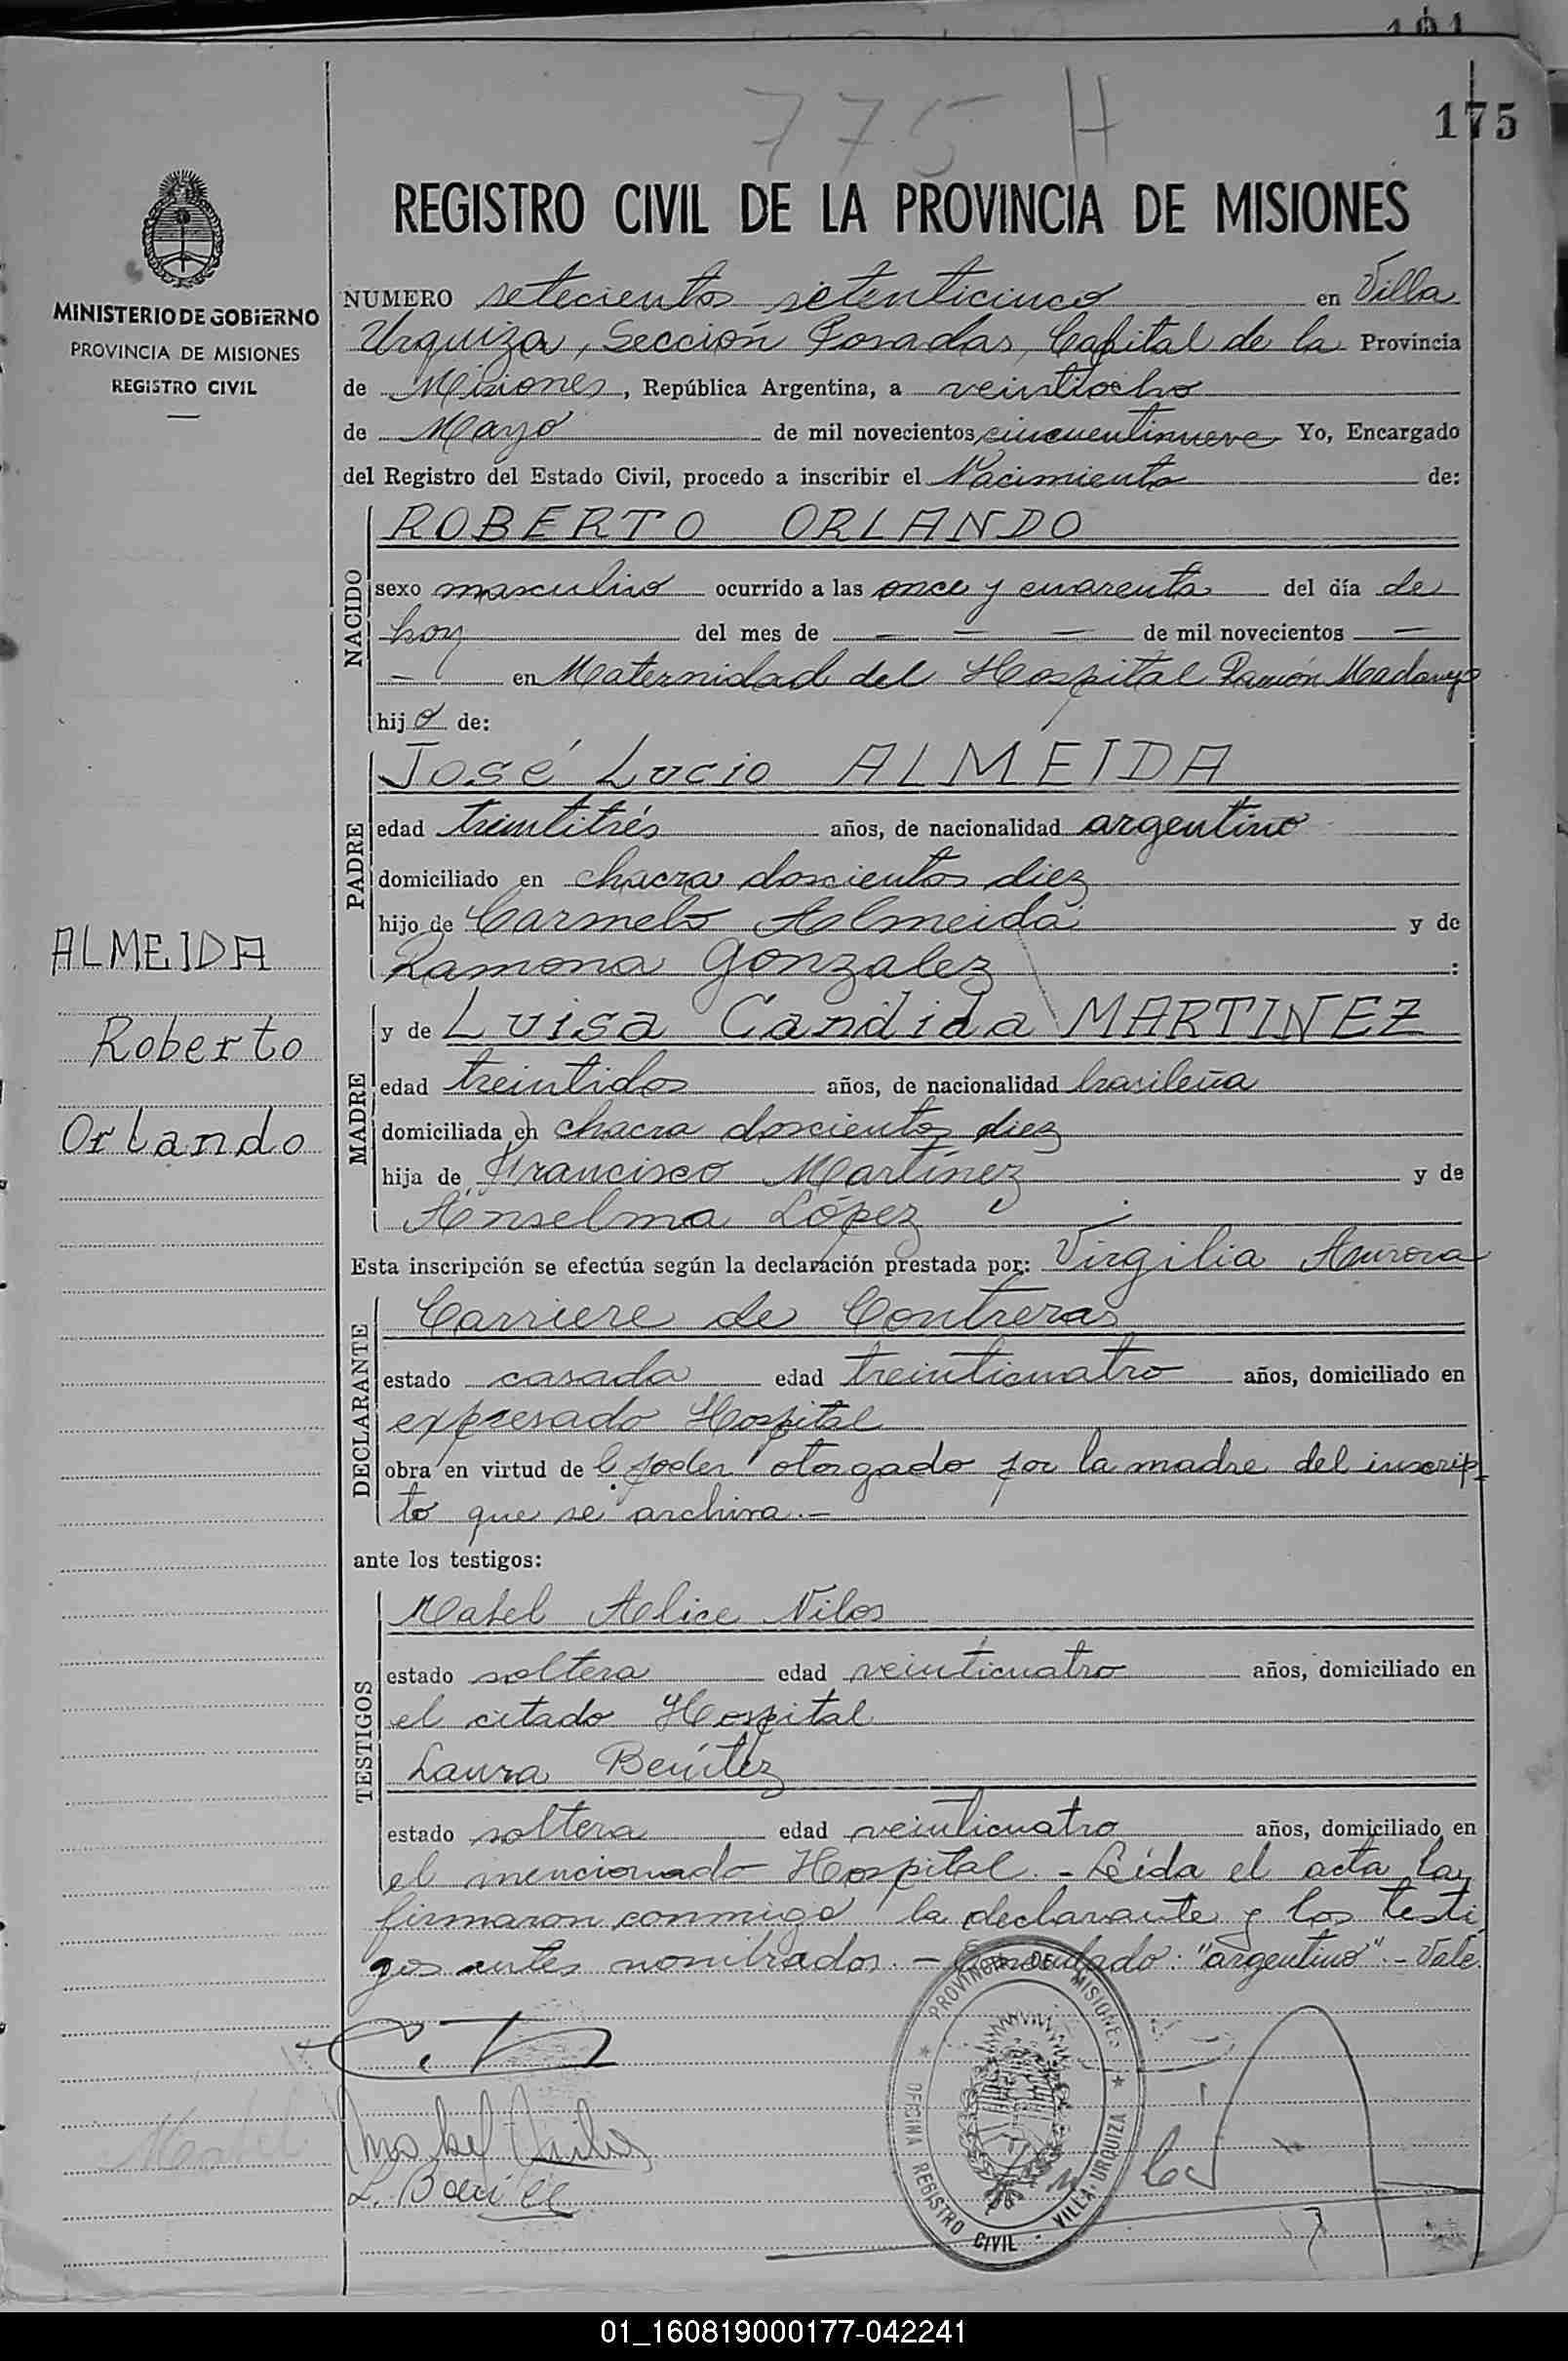 101
775 H
175
REGISTRO CIVIL DE LA PROVINCIA DE MISIONES
MINISTERIO DE GOBIERNO
PROVINCIA DE MISIONES
REGISTRO CIVIL
NUMERO setecientos setenticinco en Villa
Urquiza, Sección Posadas, Capital de la Provincia
de Misiones, República Argentina, a veintiocho
de Mayo de mil novecientos cincuentinueve Yo, Encargado
del Registro del Estado Civil, procedo a inscribir el Nacimiento de:
NACIDO
ROBERTO ORLANDO
sexo masculino ocurrido a las once y cuarenta del día de
hoy del mes de — — — de mil novecientos —
— en Maternidad del Hospital Ramón Madariaga
hijo de:
PADRE
José Lucio ALMEIDA
edad treintitrés años, de nacionalidad argentino
domiciliado en chacra doscientos diez
hijo de Carmelo Almeida y de
Ramona Gonzalez :
MADRE
y de Luisa Candida MARTINEZ
edad treintidos años, de nacionalidad brasileña
domiciliada en chacra doscientos diez
hija de Francisco Martínez y de
Anselma López
ALMEIDA
Roberto
Orlando
Esta inscripción se efectúa según la declaración prestada por: Virgilia Aurora
DECLARANTE
Carriere de Contreras
estado casada edad treinticuatro años, domiciliado en
expresado Hospital
obra en virtud de poder otorgado por la madre del inscrip-
to que se archiva.—
ante los testigos:
TESTIGOS
Mabel Alice Vilos
estado soltera edad veinticuatro años, domiciliado en
el citado Hospital
Laura Benítez
estado soltera edad veinticuatro años, domiciliado en
el mencionado Hospital.- Leída el acta la
firmaron conmigo la declarante y los testi
gos antes nombrados. - Enmendado: "argentino".- Vale.
PROVINCIA DE MISIONES
OFICINA REGISTRO CIVIL - VILLA URQUIZA
Mabel
L. Benítez
01_160819000177-042241